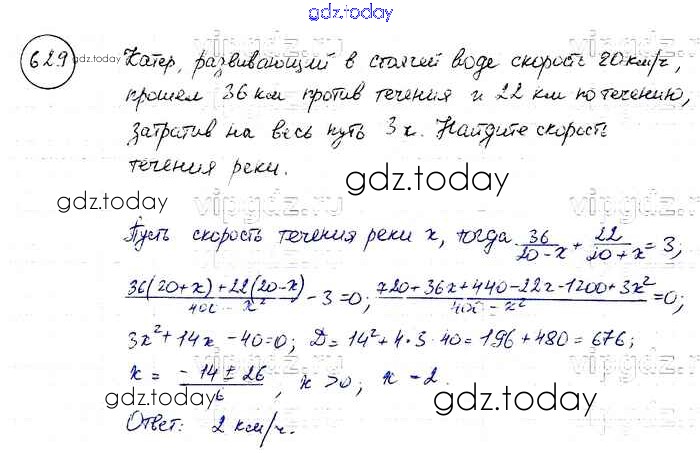 gdz.today
629 gdz.today Катер, развивающий в стоячей воде скорость 20км/ч,
прошел 36 км против течения и 22 км по течению,
затратив на весь путь 3 ч. Найдите скорость
течения реки.
gdz.today
gdz.today vipgdz.ru vipgdz.ru
Пусть скорость течения реки x, тогда 36/(20-x) + 22/(20+x) = 3;
(36(20+x)+22(20-x))/(400-x²) - 3=0; (720+36x+440-22x-1200+3x²)/(400-x²) =0;
3x²+14x-40=0; D=14²+4·3·40=196+480=676;
x = (-14±26)/6, x>0; x=2.
gdz.today gdz.today
Ответ: 2 км/ч.